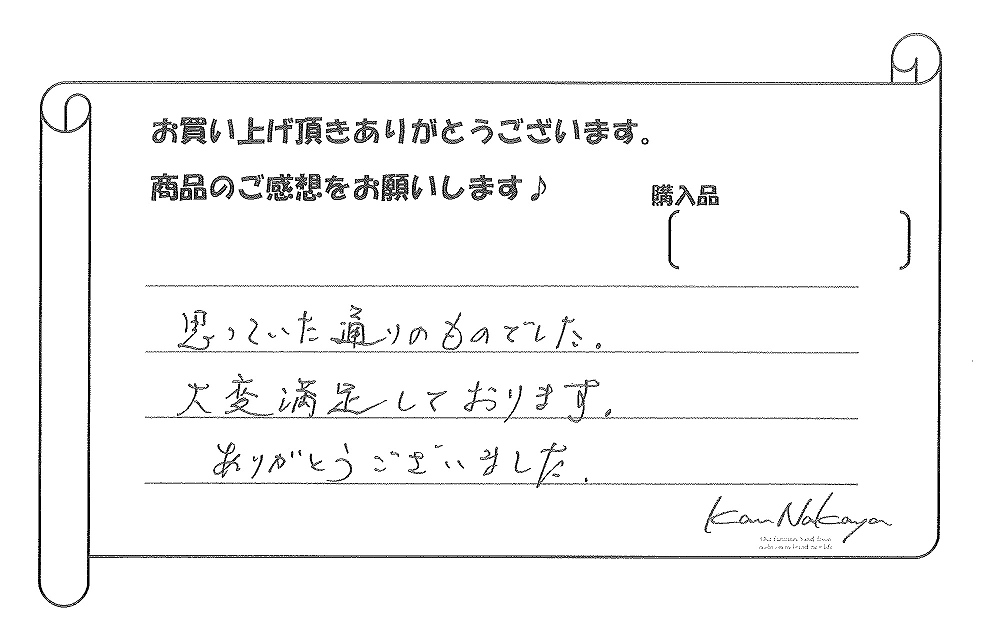 お買い上げ頂きありがとうございます。
商品のご感想をお願いします♪
購入品
思っていた通りのものでした.
大変満足しております.
ありがとうございました.
Kan Nakaya